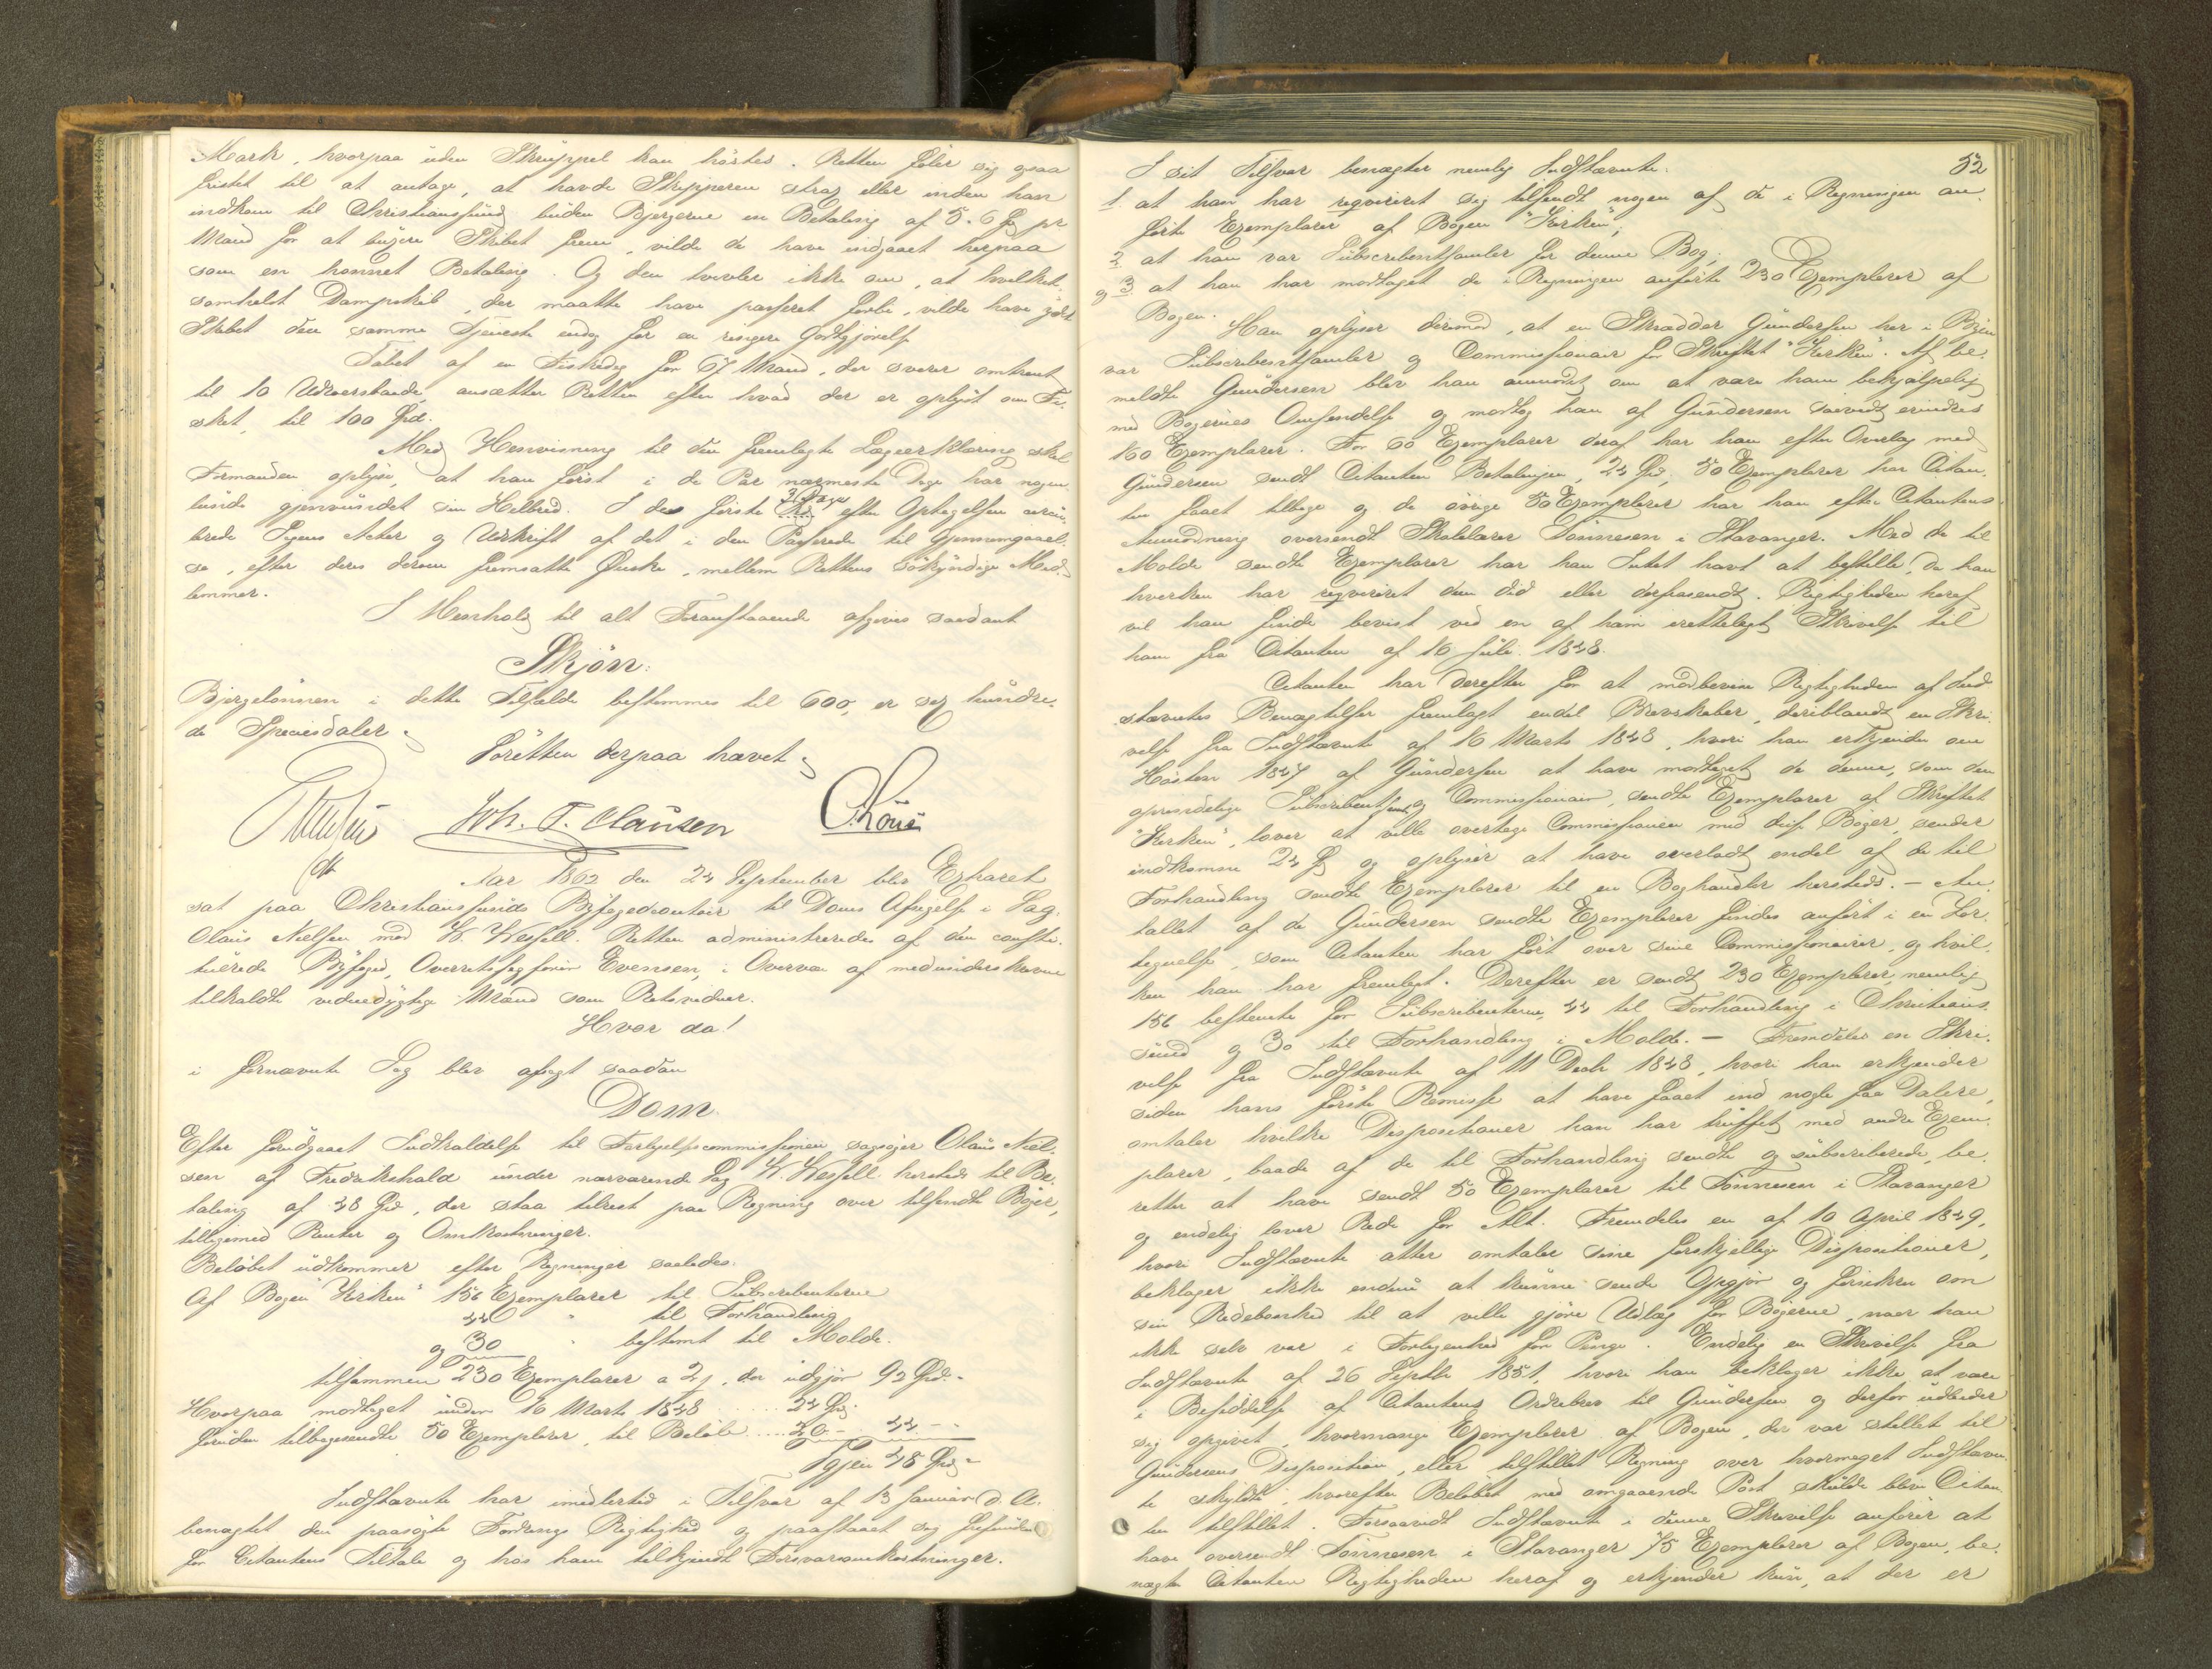 Mark, hvorpaa uden Skruppel kan hörtes. Retten föler sig ogsaa
fristet til at antage, at havde Skipperen strax eller inden han
indkom til Christianssund buden Bjergerne en Betaling af 5-6 Spd pr
Mand for at bugsere Skibet frem, vilde de have indgaaet herpaa
som en honnet Betaling. Og den tvivler ikke om, at hvilket
somhelst Dampskib, der maatte have passeret forbi, vilde have gjort
Skibet den samme Tjeneste endog for en ringere Godtgjörelse
Tabet af en Fiskedag for 67 Mand, der svarer omtrent
til 10 Udroersbaade, ansætter Retten efter hvad der er oplyst om Fi-
sket, til 100 Spd.
Med Henvisning til den fremlagte Lægeerklæring skal
Formanden oplyse, at han först i de Par nærmeste Dage har nogen-
lunde gjenvundet sin Helbred. I de förste 3 Dage efter Optagelsen cirku-
lerede Sagens Acter og Udskrift af det i den Passerede til Gjennemgaael-
se, efter deres derom fremsatte Önske, mellem Rettens sökyndige Med-
lemmer.
I Henhold til alt Foranstaaende afgives saadant
Skjön:
Bjergelönnen i dette Tilfælde bestemmes til 600, er sex hundre-
de Speciesdaler.
Forretten derpaa hævet.
Joh. F. Clausen
Aar 1862 den 24 September blev Extraret
sat paa Christianssunds Byfogedcontoir til Doms Afsigelse i Sag
Olaus Nielsen mod W. Wessell. Retten administreredes af den consti-
tuerede Byfoged, Overretssagförer Evensen, i Overvær af medunderskrevne
tilkaldte vidnedygtige Mænd som Retsvidner.
Hvor da!
i fornævnte Sag blev afsagt saadan
Dom.
Efter forudgaaet Indkaldelse til Forligelsescommissionen sagsöger Olaus Niel-
sen af Fredrikshald under nærværende Sag W. Wessell hersteds til Be-
taling af 48 Spd, der staa tilrest paa Regning over tilsendte Böger,
tilligemed Renter og Omkostninger.
Belöbet udkommer efter Regninger saaledes:
Af Bogen "Kirken" 156 Exemplarer til Subscribenterne
44 " til Forhandling
og 30 " bestemt til Molde.
tilsammen 230 Exemplarer a 2 ƒ, der udgjör 92 Spd. -
Hvorpaa modtaget under 16 Marts 1848 ..... 24 Spd.
foruden tilbagesendte 50 Exemplarer, til Belöb .... 20 - 44 - -
Igjen 48 Spd -
Indstævnte har imidlertid i Tilsvar af 13 Januar d. A.
benægtet den paasögte Fordrings Rigtighed og paastaaet sig frifunden
for Citantens Tiltale og hos ham tilkjendt Forsvarsomkostninger.
52
I sit Tilsvar benægter nemlig Indstævnte:
1. at han har reqvireret sig tilsendt nogen af de i Regningen an-
förte Exemplarer af Bogen "Kirken",
2 at han var Subscribentsamler for denne Bog,
og 3 at han har modtaget de i Regningen anförte 230 Exemplarer af
Bogen.
Han oplyser derimod, at en Skrædder Gundersen her i Byen
var Subscribentsamler og Commissionair for Skriftet "Kirken". Af be-
meldte Gundersen blev han anmodet om at være ham behjælpelig
med Bögernes Omsendelse og modtog han af Gundersen saavidt erindres
160 Exemplarer. For 60 Exemplarer deraf har han efter Overlæg med
Gundersen sendt Citanten Betalingen, 24 Spd, 50 Exemplarer har Citan-
ten faaet tilbage og de övrige 50 Exemplarer har han efter Citantens
Anmodning oversendt Skolelærer Tönnesen i Stavanger. Med de til
Molde sendte Exemplarer har han Intet havt at bestille, da han
hverken har reqvireret dem did eller derfrasendt. Rigtigheden heraf
vil han finde bevist ved en af ham irettelagt Skrivelse til
ham fra Citanten af 16 Juli 1848.
Citanten har derefter for at modbevise Rigtigheden af Ind-
stævntes Benægtelser fremlagt endel Brevskaber, deriblandt en Skri-
velse fra Indstævnte af 16 Marts 1848, hvori han erkjender om
Hösten 1847 af Gundersen at have modtaget de denne, som den
oprindelige Subscribentsaml. og Commissionair, sendte Exemplarer af Skriftet
"Kirken", lover at ville overtage Commissionen med disse Böger, sender
indkomne 24 Spd og oplyser at have overladt endel af de til
Forhandling sendte Exemplarer til en Boghandler hersteds. - An-
tallet af de Gundersen sendte Exemplarer findes anfört i en For-
tegnelse, som Citanten har fört over sine Commissionairer, og hvil-
ken han har fremlagt. Derefter er sendt 230 Exemplarer, nemlig
156 bestemte for Subscribenterne, 44 til Forhandling i Christians-
sund og 30 til Forhandling i Molde. - Fremdeles en Skri-
velse fra Indstævnte af 11 Decbr 1848, hvori han erkjender
siden hans förste Remisse at have faaet ind nogle faa Dalere,
omtaler hvilke Dispositioner han har truffet med andre Exem-
plarer, baade af de til Forhandling sendte og subscriberede, be-
retter at have sendt 50 Exemplarer til Tönnesen i Stavanger
og endelig lover Rede for Alt. Fremdeles en af 10 April 1849,
hvori Indstævnte atter omtaler sine forskjellige Dispositioner,
beklager ikke endnu at kunne sende Opgjör og forsikrer om
sin Redebonhed til at ville gjöre Udlæg for Bögerne, naar han
ikke selv var i Forlegenhed for Penge. Endelig en Skrivelse fra
Indstævnte af 26 Septbr 1851, hvori han beklager ikke at være
i Besiddelse af Citantens Ordrebrev til Gundersen og derfor udbeder
sig opgivet, hvormange Exemplarer af Bogen, der var stillet til
Gundersens Disposition, eller tilstillet Regning over hvormeget Indstævn-
te skyldte, hvorefter Belöbet med omgaaende Post skulde blive Citan-
ten tilstillet. Forsaavidt Indstævnte i denne Skrivelse anförer at
have oversendt Tönnesen i Stavanger 75 Exemplarer af Bogen, be-
nægter Citanten Rigtigheden heraf og erkjender kun, at der er